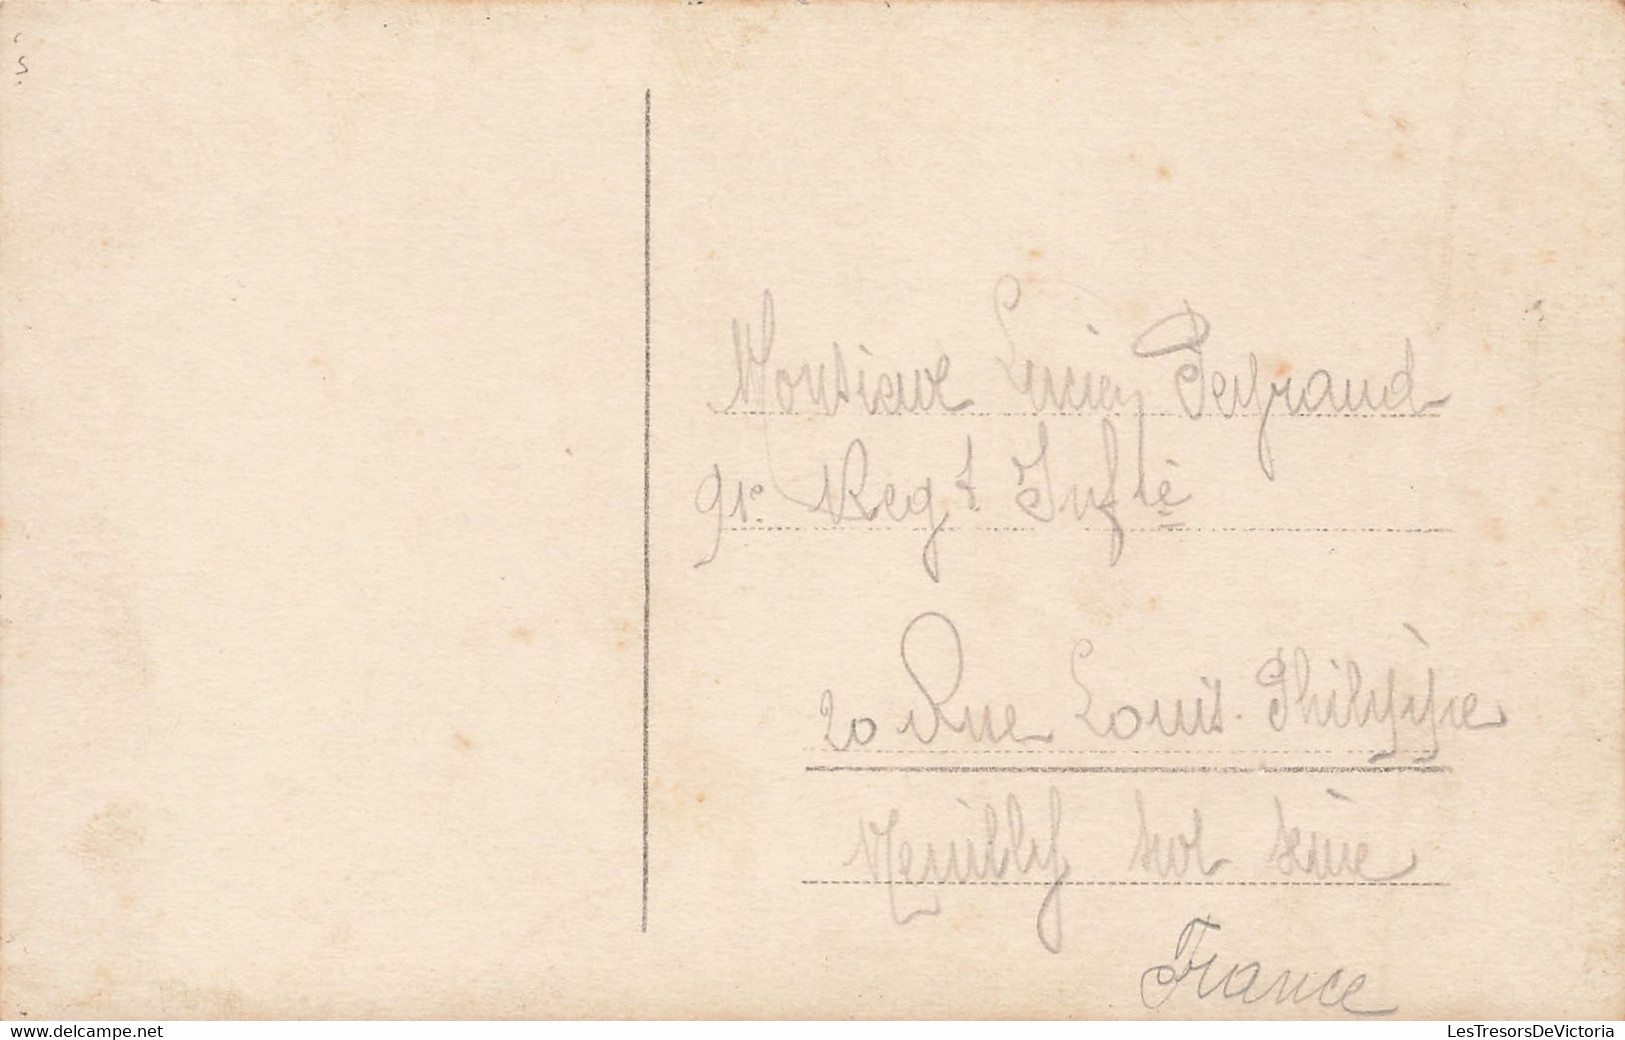 Monsieur Lucien Peyraud
91e Regt Inf ie
20 Rue Louis-Philippe
Neuilly sur seine
France
www.delcampe.net
LesTresorsDeVictoria